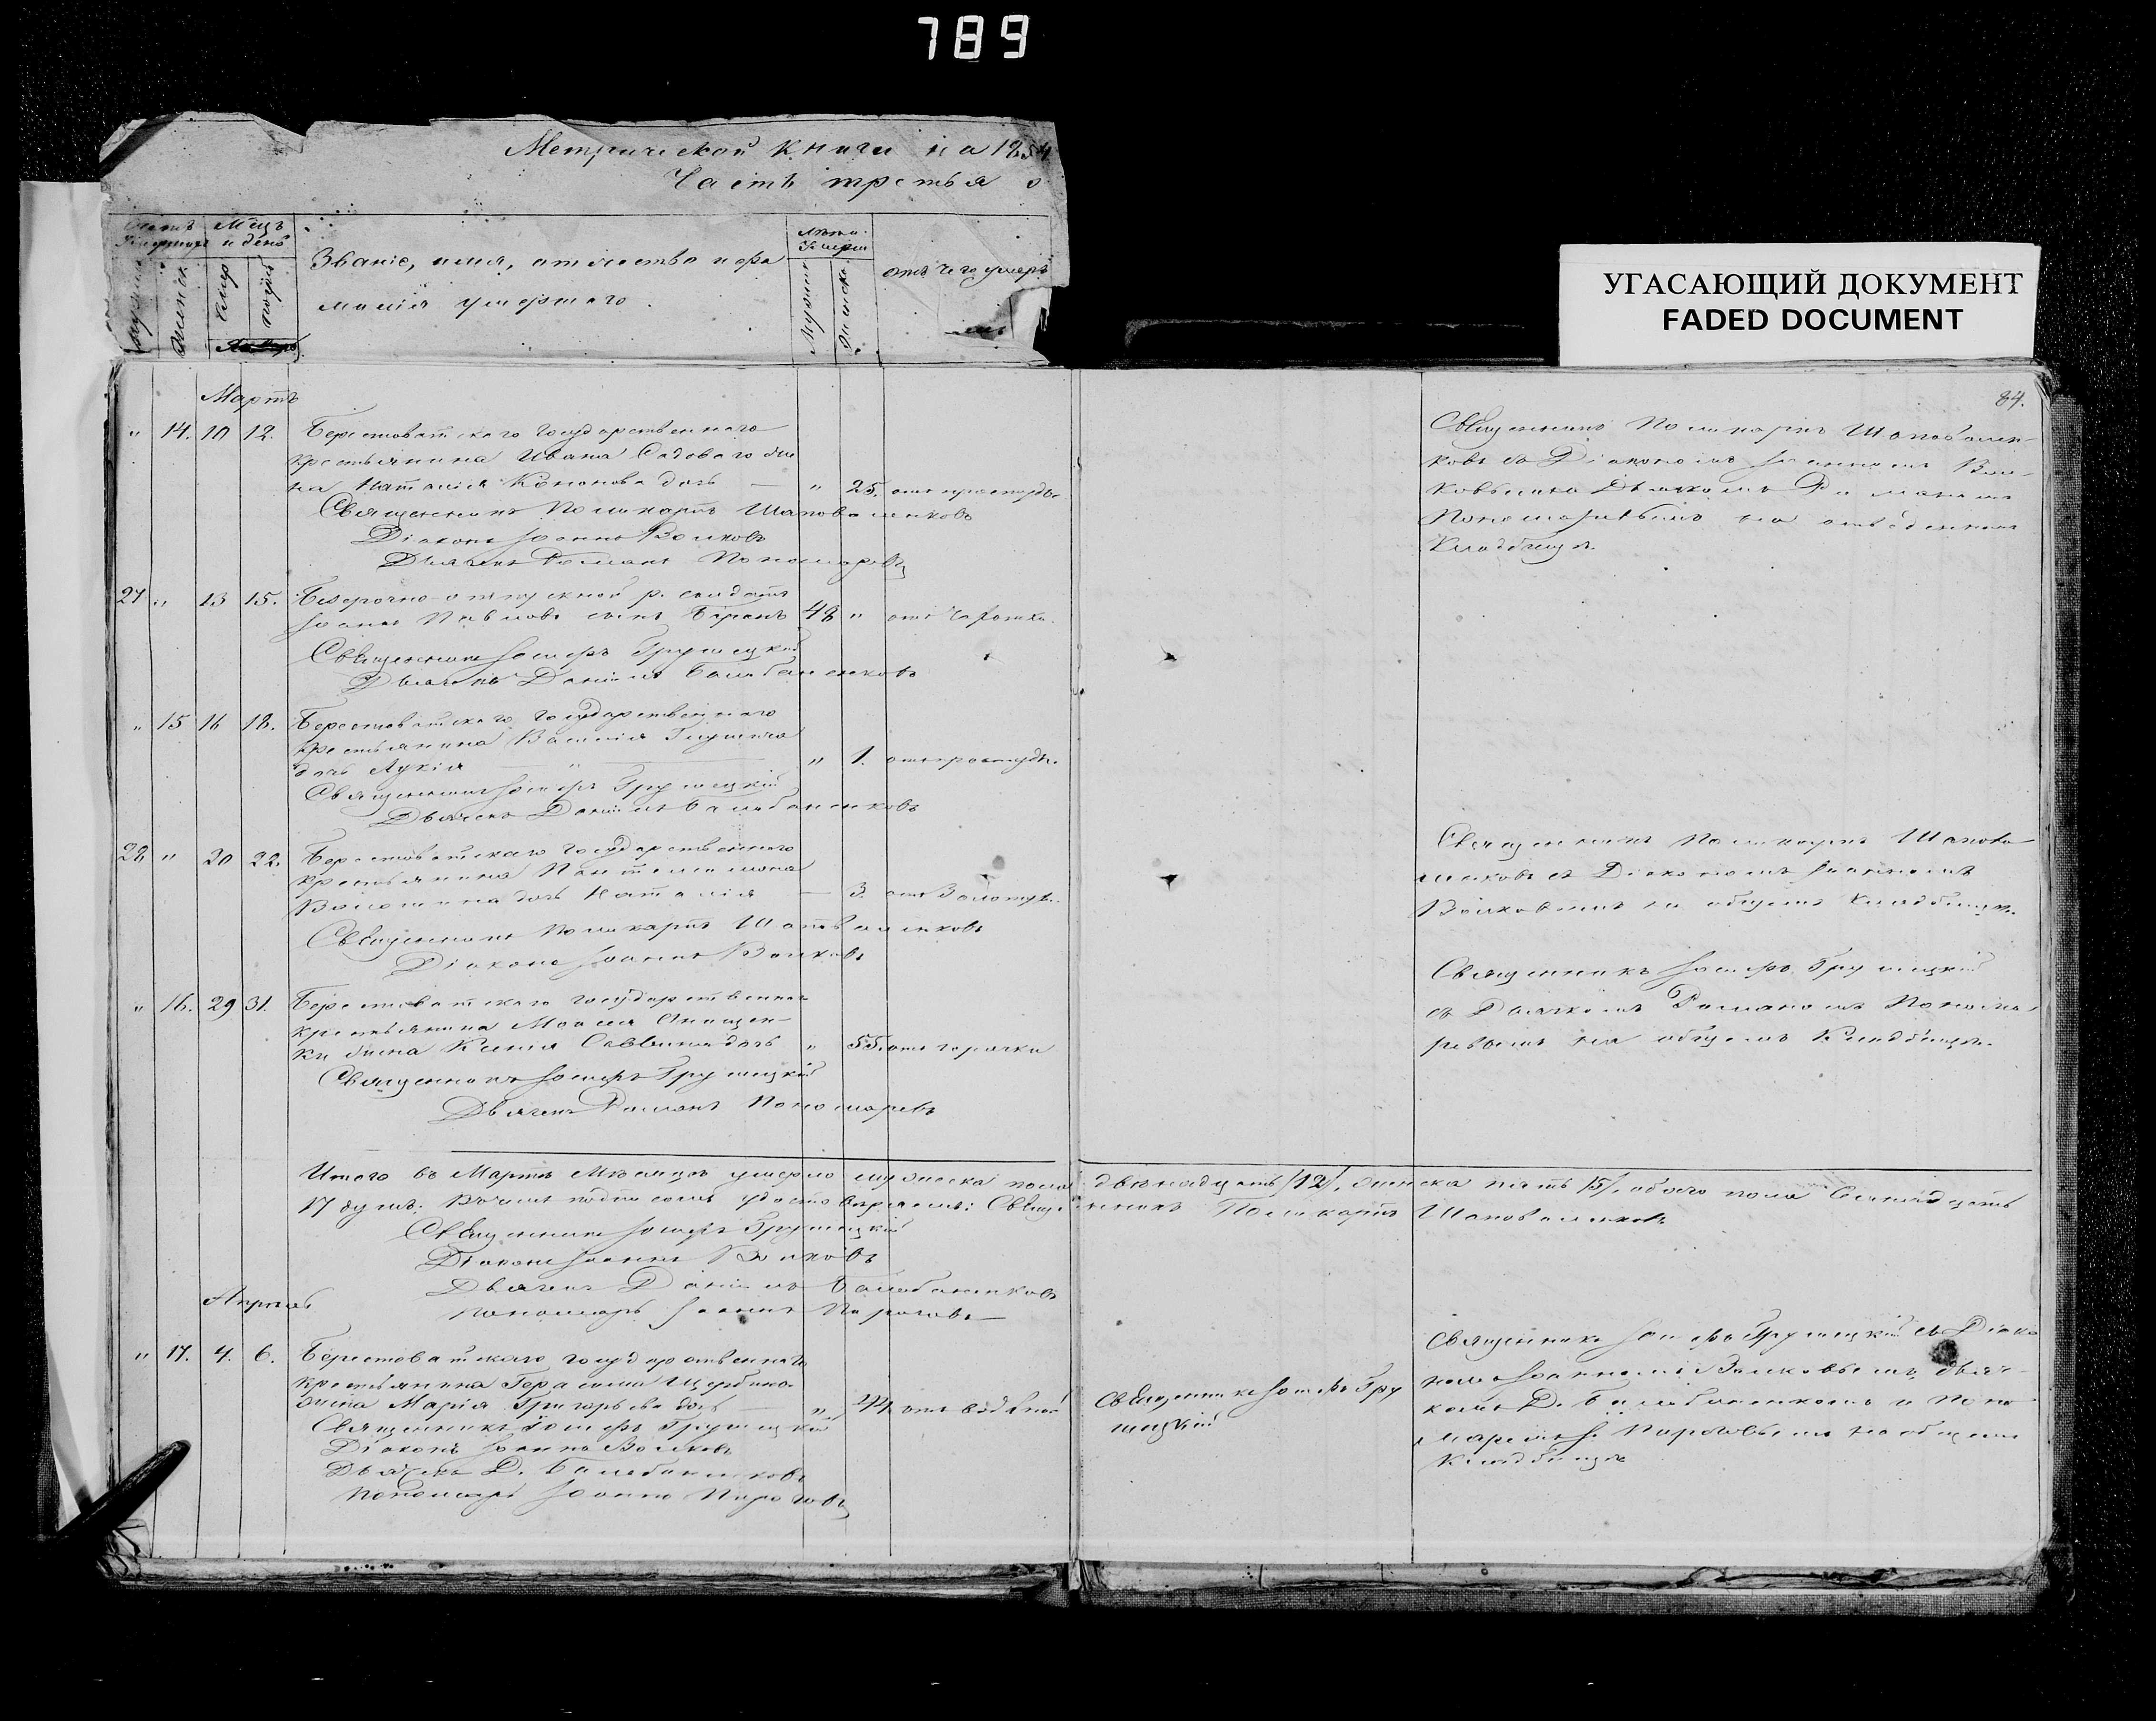 789
Метрической книги на 1854
Часть третья о
УГАСАЮЩИЙ ДОКУМЕНТ
FADED DOCUMENT
Счетъ Умершихъ
Мѣцъ и день
Званіе, имя, отчество и фа
милія умершаго.
Лѣта Умерш
отъ чего умеръ
Мужеск
Женск
84.
Мартъ
" 14. 10 12. Берестоватскаго Государственнаго
крестьянина Ивана Садоваго же
на Наталія Кононова дочь — " 25. отъ простуды
Священникъ Поликарпъ Шаповаленковъ
Діаконъ Іоаннъ Волковъ
Дьячекъ Романъ Пономаревъ
Священникъ Поликарпъ Шаповален-
ковъ съ Діакономъ Іоанномъ Вол-
ковымъ Дьячкомъ Романомъ
Пономаревымъ на отведенномъ
Кладбищѣ.
27 " 13 15. Безсрочно-отпускной р. солдатъ
Іоаннъ Павловъ сынъ 48 " отъ Чахотки.
Священникъ Іосифъ Грушецкій
Дьячекъ Даніилъ Балабаненковъ
" 15 16 18. Берестоватскаго Государственнаго
крестьянина Василія
дочь Лукія — " — " 1. отъ простуды.
Священникъ Іосифъ Грушецкій
Дьячекъ Даніилъ Балабаненковъ
28 " 20 22. Берестоватскаго Государственнаго
крестьянина Пантелимона
Волошина дочь Наталія — 3. отъ Золотухи.
Священникъ Поликарпъ Шаповаленковъ
Діаконъ Іоаннъ Волковъ
Священникъ Поликарпъ Шапова-
ленковъ съ Діакономъ Іоанномъ
Волковымъ на общемъ Кладбищѣ.
" 16. 29 31. Берестоватскаго государственнаго
крестьянина Моисея Онищен-
ки жена Ксенія Саввина дочь " 55. отъ горячки
Священникъ Іосифъ Грушецкій
Дьячекъ Романъ Пономаревъ
Священникъ Іосифъ Грушецкій
съ Дьячкомъ Романомъ Понома-
ревымъ на общемъ Кладбищѣ.
Итого въ Мартѣ Мѣсяцѣ умерло мужеска пола двѣнадцать /12/, женска пять /5/, обоего пола Семнадцать
17 душъ. Въ чемъ подписомъ удостовѣряемъ: Священникъ Поликарпъ Шаповаленковъ
Священникъ Іосифъ Грушецкій
Діаконъ Іоаннъ Волковъ
Дьячекъ Даніилъ Балабаненковъ
Пономарь Іоаннъ Пироговъ
Апрѣль
" 17. 4. 6. Берестоватскаго государственнаго
крестьянина Герасима Щербины
жена Марія Григорьева дочь — " 44 отъ водяной
Священникъ Іосифъ Грушецкій
Діаконъ Іоаннъ Волковъ
Дьячекъ Д. Балабаненковъ
Пономарь Іоаннъ Пироговъ
Священникъ Іосифъ Гру
шецкій
Священникъ Іосифъ Грушецкій съ Діако
номъ Іоанномъ Волковымъ, дьяч-
комъ Д. Балабаненкомъ и Поно
маремъ І. Пироговымъ на общемъ
Кладбищѣ